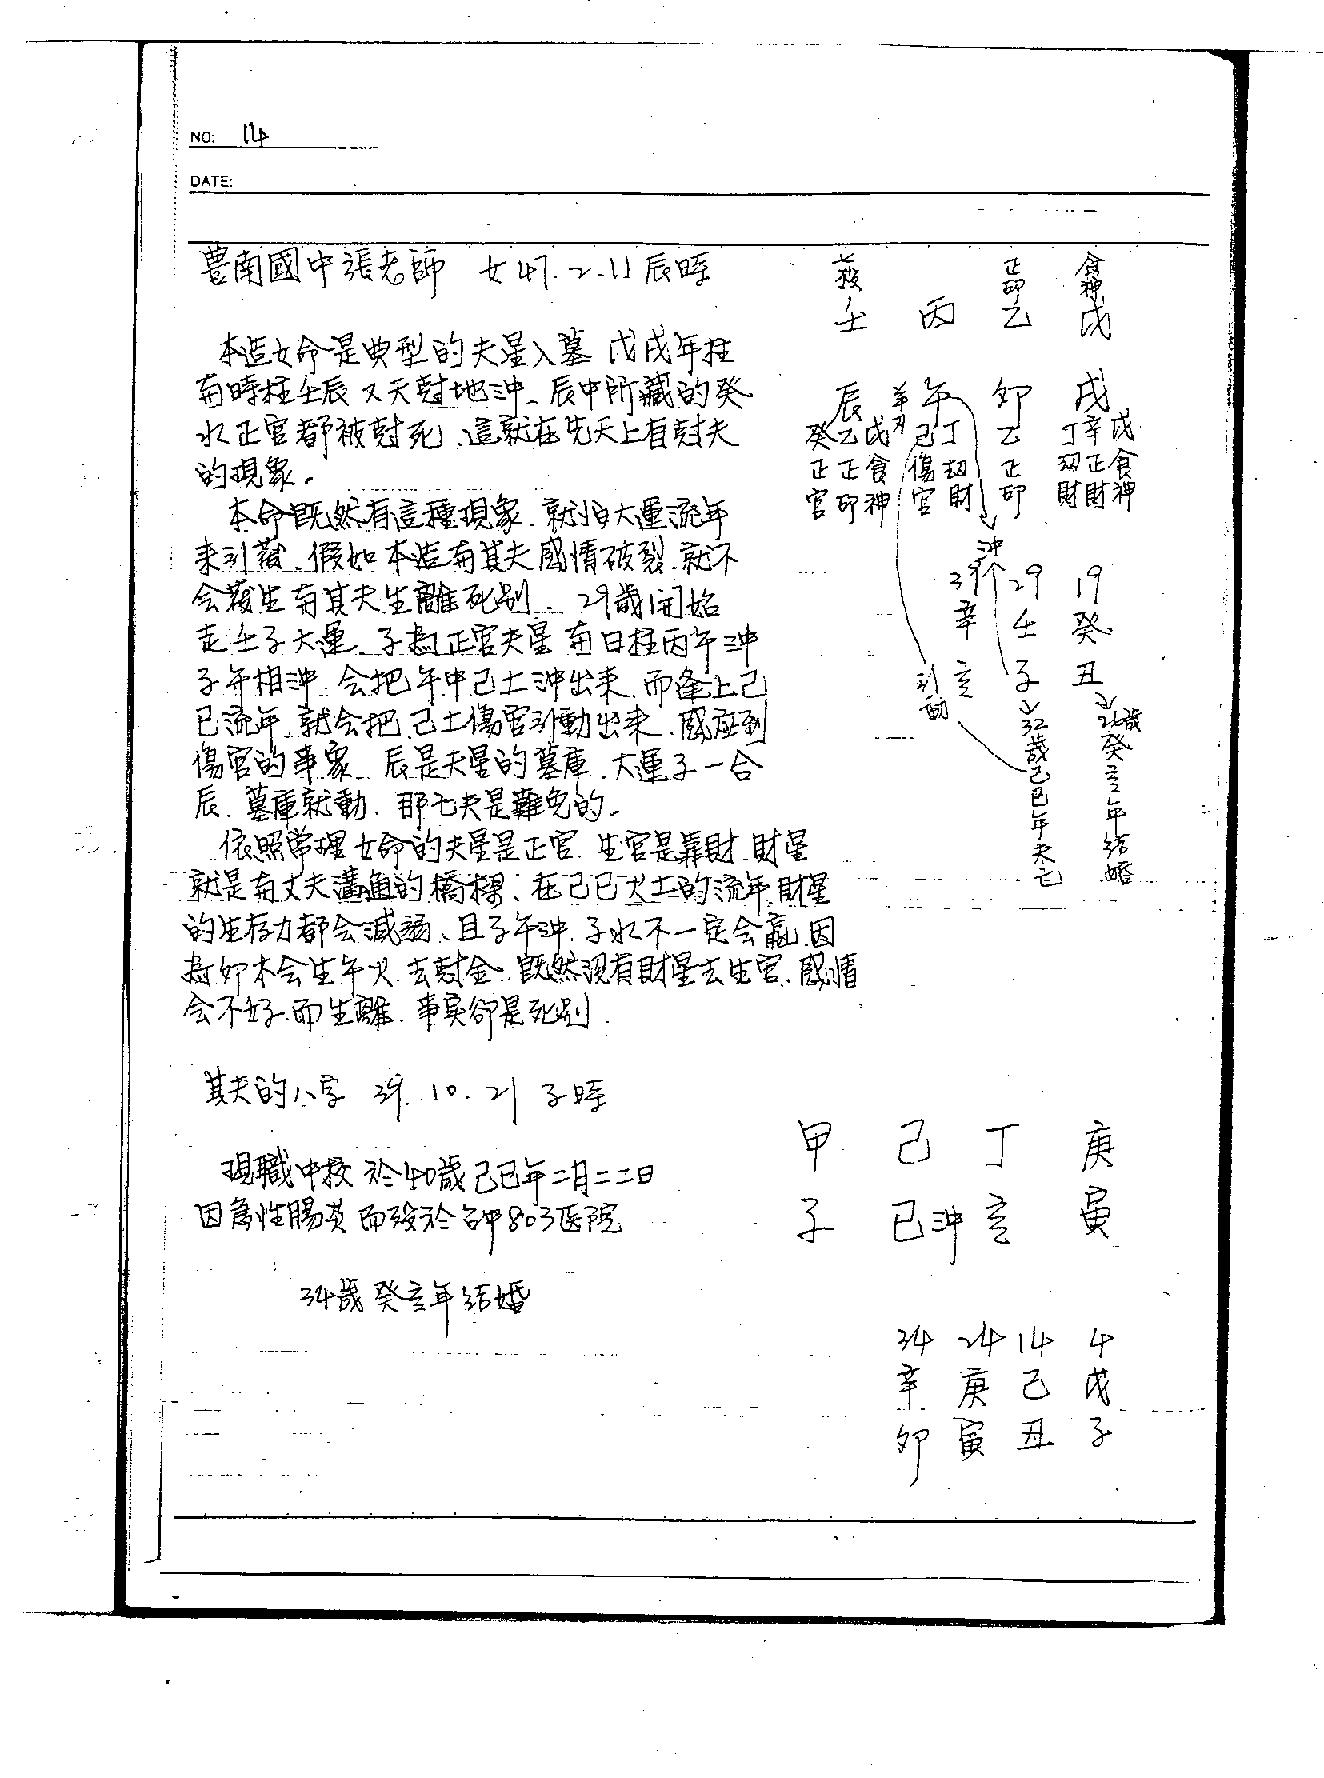 NO: 14
DATE:
豊南國中張老師 女47.2.11辰時
本造女命是典型的夫星入墓 戊戌年柱
與時柱壬辰又天尅地沖、辰中所藏的癸
水正官都被尅死、這就在先天上有尅夫
的現象。
本命既然有這種現象、就怕大運流年
來引發、假如本造與其夫感情破裂、就不
会發生與其夫生離死別、29歲開始
走壬子大運、子為正官夫星與日柱丙午沖
子午相沖、会把午中己土沖出來、而逢上己
巳流年、就会把己土傷官引動出來、感应到
傷官的事象、辰是夫星的墓庫、大運子一合
辰、墓庫就動、那亡夫是難免的。
依照常理女命的夫星是正官、生官是靠財、財星
就是與丈夫溝通的橋樑、在己巳火土的流年、財星
的生存力都会減弱、且子午沖、子水不一定会贏、因
為卯木会生午火、去尅金、既然沒有財星去生官、感情
会不好、而生離、事實卻是死別.
其夫的八字 39.10.21子時
現職中校 於40歲己巳年二月二二日
因急性腸炎而歿於台中803医院
34歲癸亥年結婚
七殺 正印 食神
壬 丙 乙 戊
辰 羊刃 午 卯 戌
癸 乙 戊 己 丁 乙 丁 辛 戊
正官 正印 食神 傷官 劫財 正印 劫財 正財 食神
沖
39 29 19
辛 壬 癸
亥 子 丑
引動
32歲己巳年夫亡
26歲癸亥年結婚
甲 己 丁 庚
子 巳 沖 亥 寅
34 24 14 4
辛 庚 己 戊
卯 寅 丑 子